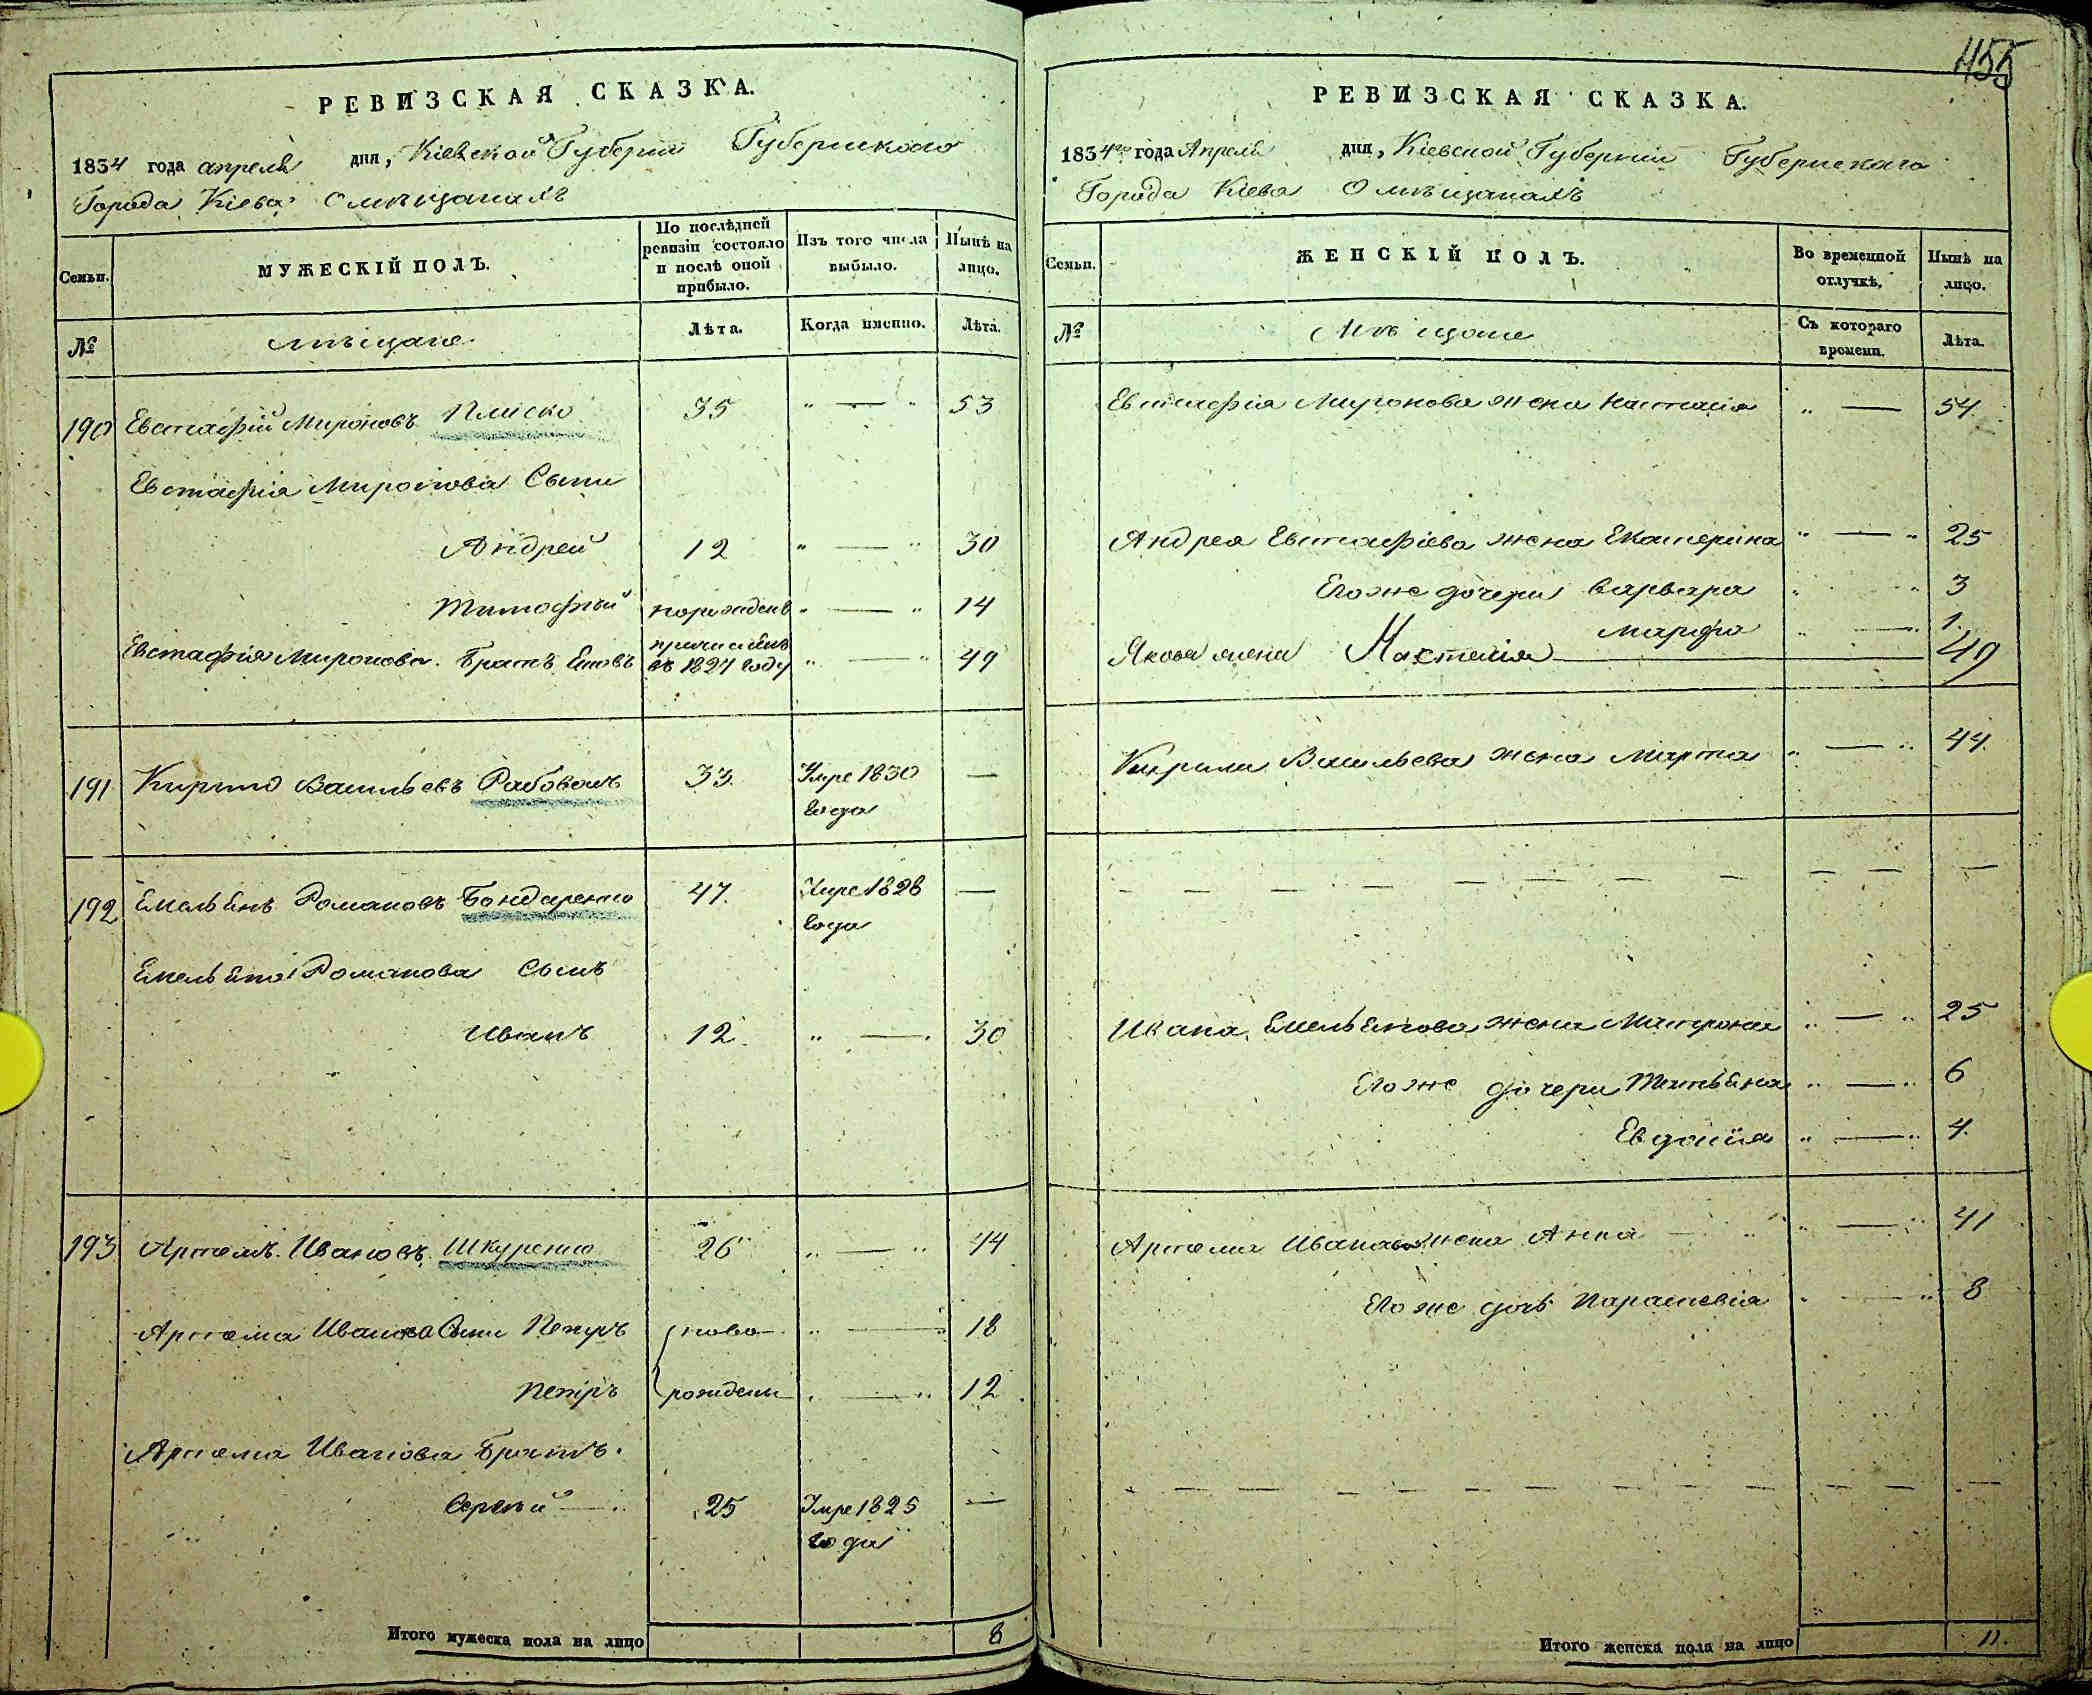 455
РЕВИЗСКАЯ СКАЗКА.
1834 года апреля дня, Кіевской Губерніи Губернскаго
Города Кіева О мѣщанахъ
Семьи.
МУЖЕСКІЙ ПОЛЪ.
По послѣдней ревизіи состояло и послѣ оной прибыло.
Изъ того числа выбыло.
Нынѣ на лицо.
№
мѣщане
Лѣта.
Когда имянно.
Лѣта.
190 Евстафій Мироновъ Плиско 35 " — " 53
Евстафія Миронова Сыны
Андрей 12 " — " 30
Тимофѣй норожденъ " — " 14
Евстафія Миронова Братъ Яковъ причисленъ въ 1827 году " — " 49
191 Кирило Васильевъ Рабоволъ 33. Умре 1830 года —
192 Емельянъ Романовъ Бондаренко 47. Умре 1828 года —
Емельяна Романова Сынъ
Иванъ 12. " — . 30
193 Артемъ Ивановъ Шкуренко 26 " — " 44
Артема Иванова Сыны Петръ ново- " — " 18
Петръ рождены " — " 12
Артема Иванова Братъ.
Сергѣй 25 Умре 1825 года —
Итого мужеска пола на лицо 8
РЕВИЗСКАЯ СКАЗКА.
1834го года Апреля дня, Кіевской Губерніи Губернскаго
Города Кіева О мѣщанахъ
Семьи.
ЖЕНСКІЙ ПОЛЪ.
Во временной отлучкѣ.
Нынѣ на лицо.
№
Мѣщане
Съ котораго времени.
Лѣта.
Евстафія Миронова жена Настасія " — 54.
Андрея Евстафіева жена Екатерина " — " 25
Его же дочери Варвара " " 3
Марфа " — " 1.
Якова жена Настасія — 49
Кирила Васильева жена Марта " — " 44.
— — — — — — — — — — —
Ивана Емельянова жена Матрона " — " 25
Его же дочери Татьяна " — " 6
Евдокія " — " 4.
Артема Иванова жена Анна — " — " 41
Его же дочь Параскевія " — " 8
— — — — — — — — — — —
Итого женска пола на лицо 11.